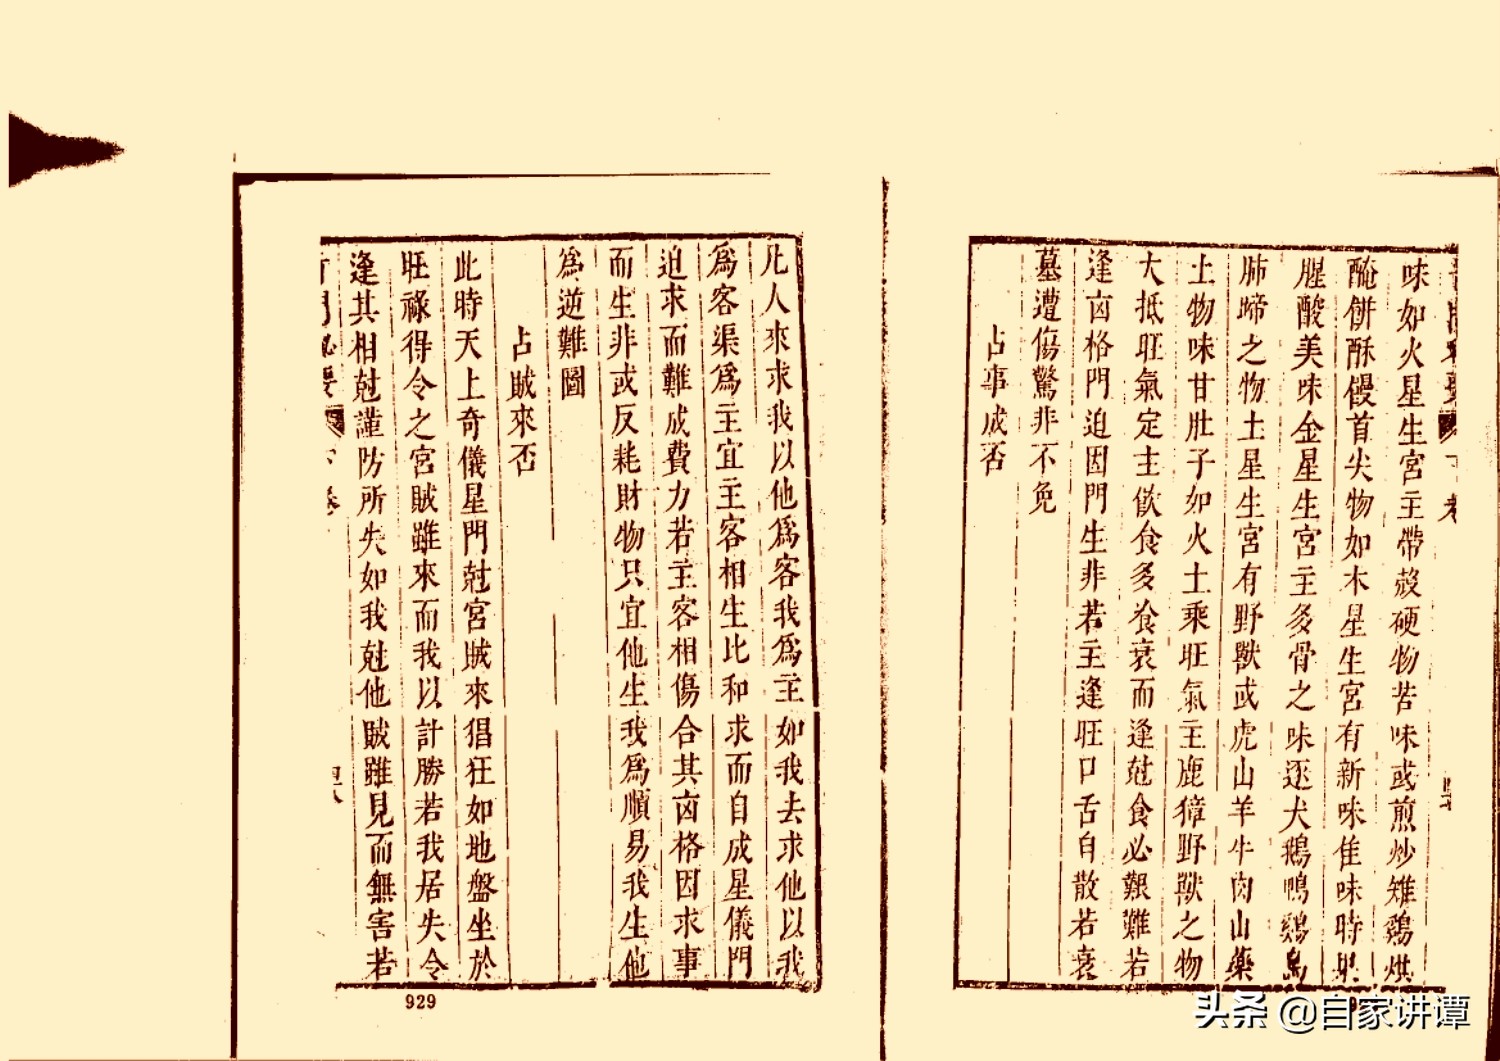 味如火星生宮主帶殼硬物苦味或煎炒雉鷄烘
醃餅酥饅首尖物如木星生宮有新味佳味時果
腥酸美味金星生宮主多骨之味逐犬鵝鴨鷄鳥
肺蹄之物土星生宮有野獸或虎山羊牛肉山藥
土物味甘肚子如火土乘旺氣主鹿獐野獸之物
大抵旺氣定主飲食多飡衰而逢尅食必艱難若
逢卤格門迫因門生非若主逢旺口舌自散若衰
墓遭傷驚非不免
占事成否
凡人來求我以他爲客我爲主如我去求他以我
爲客渠爲主宜主客相生比和求而自成星儀門
迫求而難成費力若主客相傷合其卤格因求事
而生非或反耗財物只宜他生我爲順易我生他
爲逆難圖
占賊來否
此時天上奇儀星門尅宮賊來猖狂如地盤坐於
旺祿得令之宮賊雖來而我以計勝若我居失令
逢其相尅謹防所失如我尅他賊雖見而無害若
下卷
929
头条 @自家讲谭